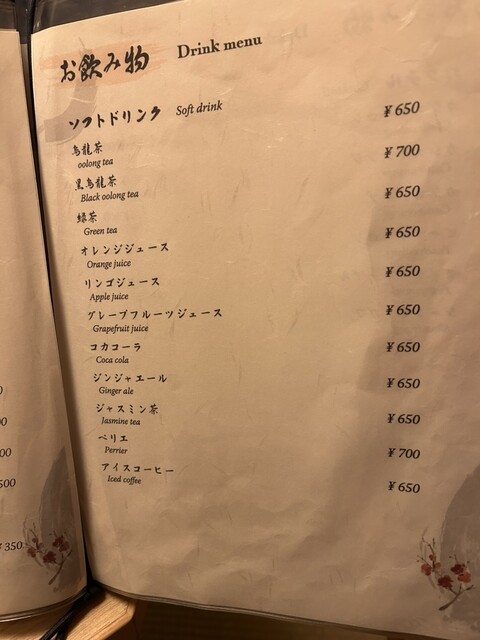 お飲み物 Drink menu
ソフトドリンク Soft drink
烏龍茶 ¥650
oolong tea
黒烏龍茶 ¥700
Black oolong tea
緑茶 ¥650
Green tea
オレンジジュース ¥650
Orange juice
リンゴジュース ¥650
Apple juice
グレープフルーツジュース ¥650
Grapefruit juice
コカコーラ ¥650
Coca cola
ジンジャエール ¥650
Ginger ale
ジャスミン茶 ¥650
Jasmine tea
ペリエ ¥700
Perrier
アイスコーヒー ¥650
Iced coffee
¥350